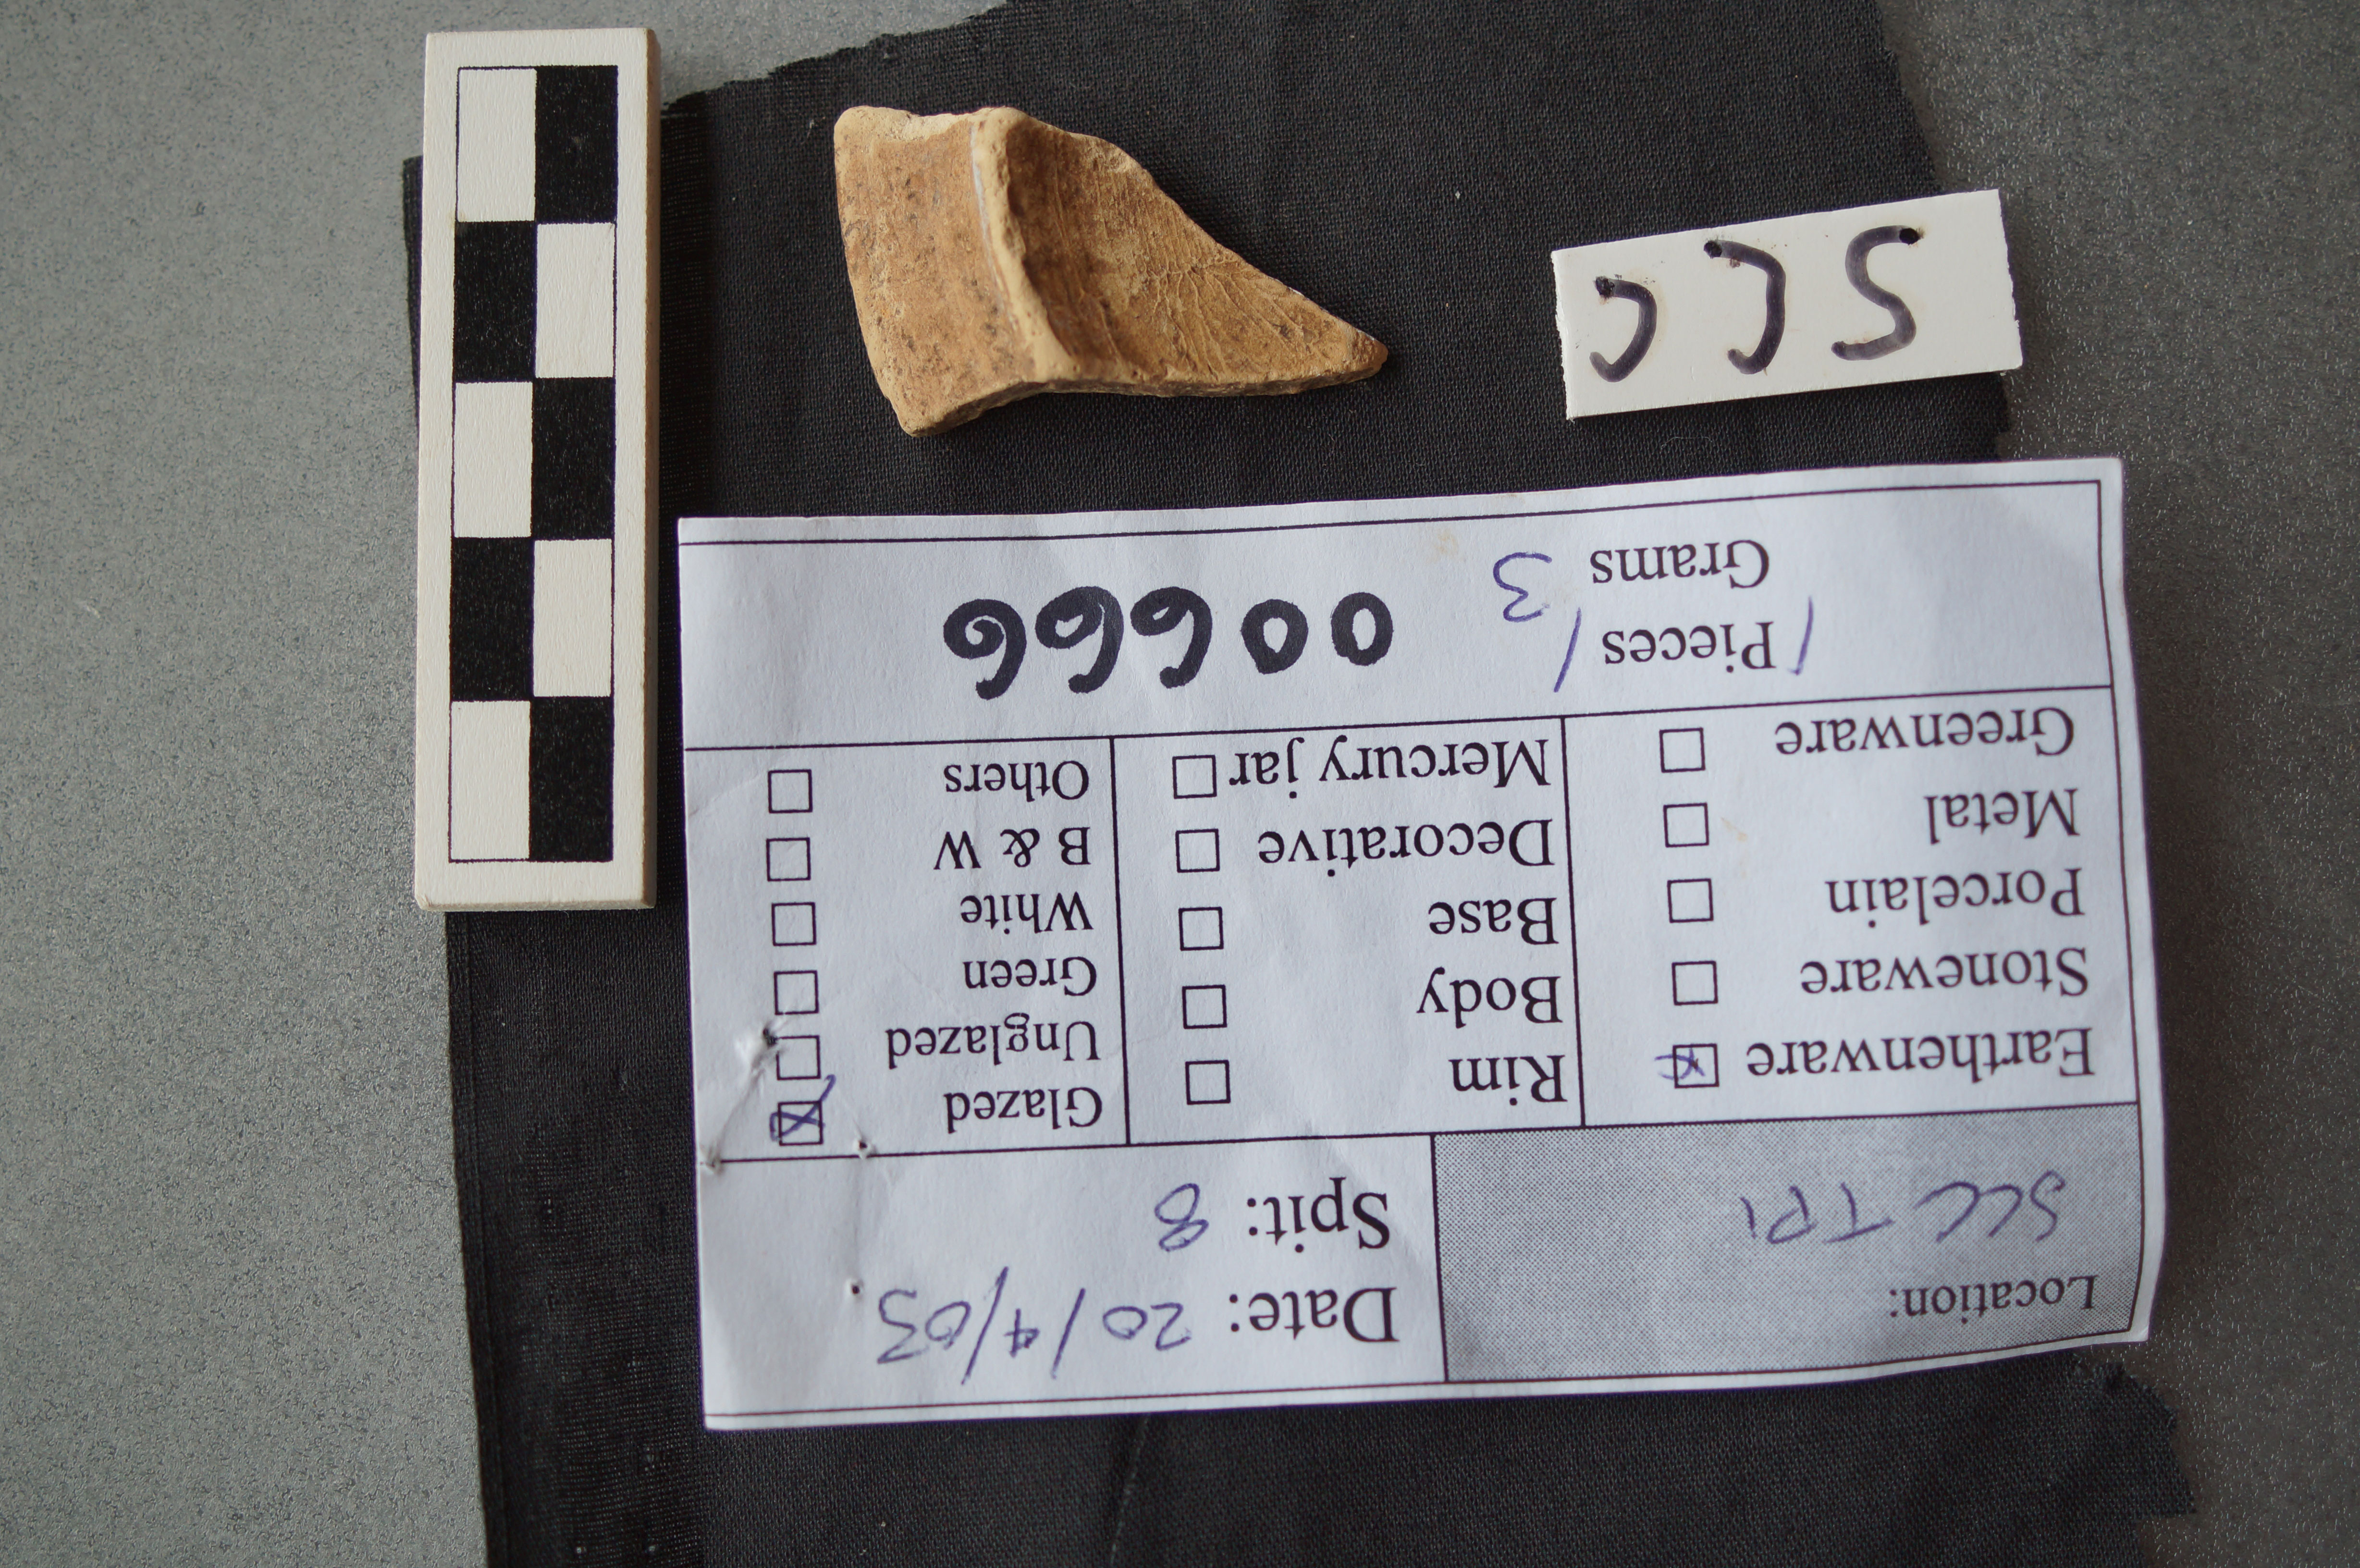 Location:
SCC TP1
Date: 20/4/03.
Spit: 8
Earthenware
Stoneware
Porcelain
Metal
Greenware
Rim
Body
Base
Decorative
Mercury jar
Glazed
Unglazed
Green
White
B & W
Others
/ Pieces /
Grams 3
00666
SCC